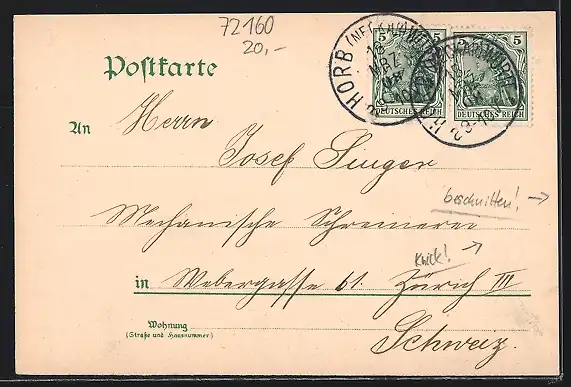 72160
20,-
Postkarte
HORB (NECKAR)
MRZ
5 5
DEUTSCHES REICH DEUTSCHES REICH
An Herrn
Josef Singer
beschnitten! →
Mechanische Schreinerei
Knick!
in Webergasse 61. Zürich III
Wohnung
(Straße und Hausnummer)
Schweiz.